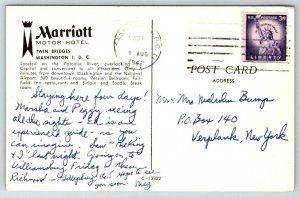 Marriott
MOTOR HOTEL
TWIN BRIDGES
WASHINGTON 1, D. C.
Located on the Potomac River, overlooking the
Capitol and convenient to all attractions. Only
minutes from downtown Washington and the National
Airport. 300 beautiful rooms, Persian Ballroom, Fair-
field Inn Restaurant and Sirloin and Saddle Steak
room.
POST CARD
ADDRESS
U.S. POSTAGE
3¢
LIBERTY
AUG
Staying here four days!
Marsha and Peggy seeing
all the sights. Ed is an
experienced guide - as you
can imagine. Saw "The King
& I" last night. Going on to
Williamsburg Friday - then
Richmond - Gettysburg etc. Hope to see
you soon. Meg
C-13232
Mr & Mrs Nicholas Bump
P.O. Box 140
Verplanck, New York